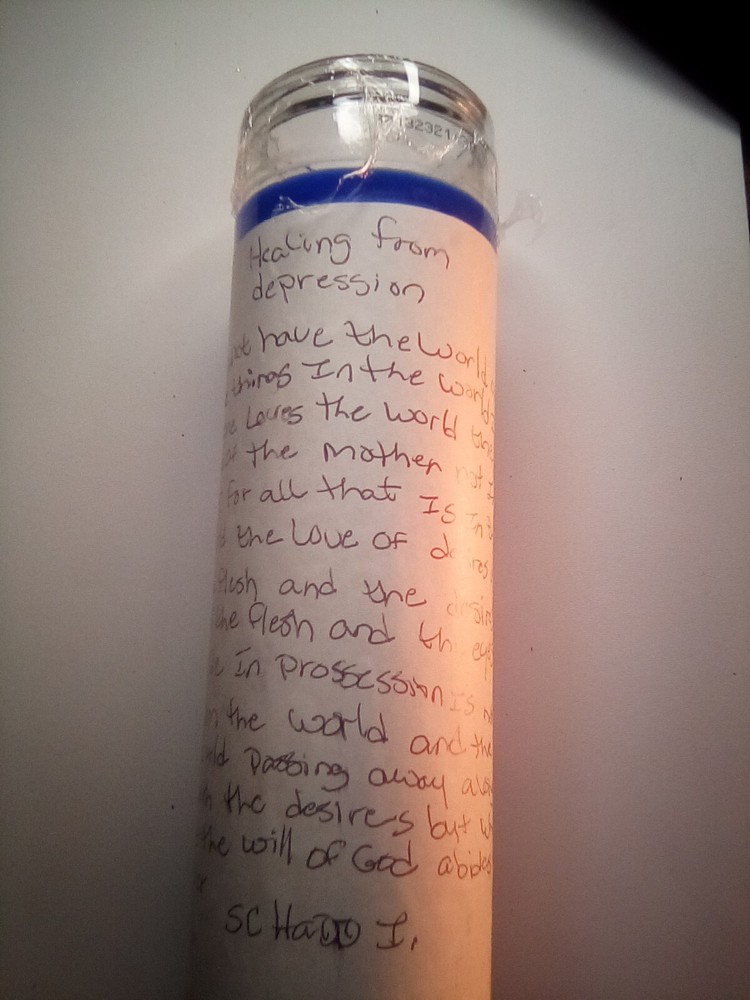 132321
Healing from
depression
have the World
things In the world
Loves the world the
the Mother not
for all that Is In
the Love of
flesh and the
the flesh and th eye
In Prossession Is
the world and the
Passing away
the desires but
the will of God abides
SCHaDD I.